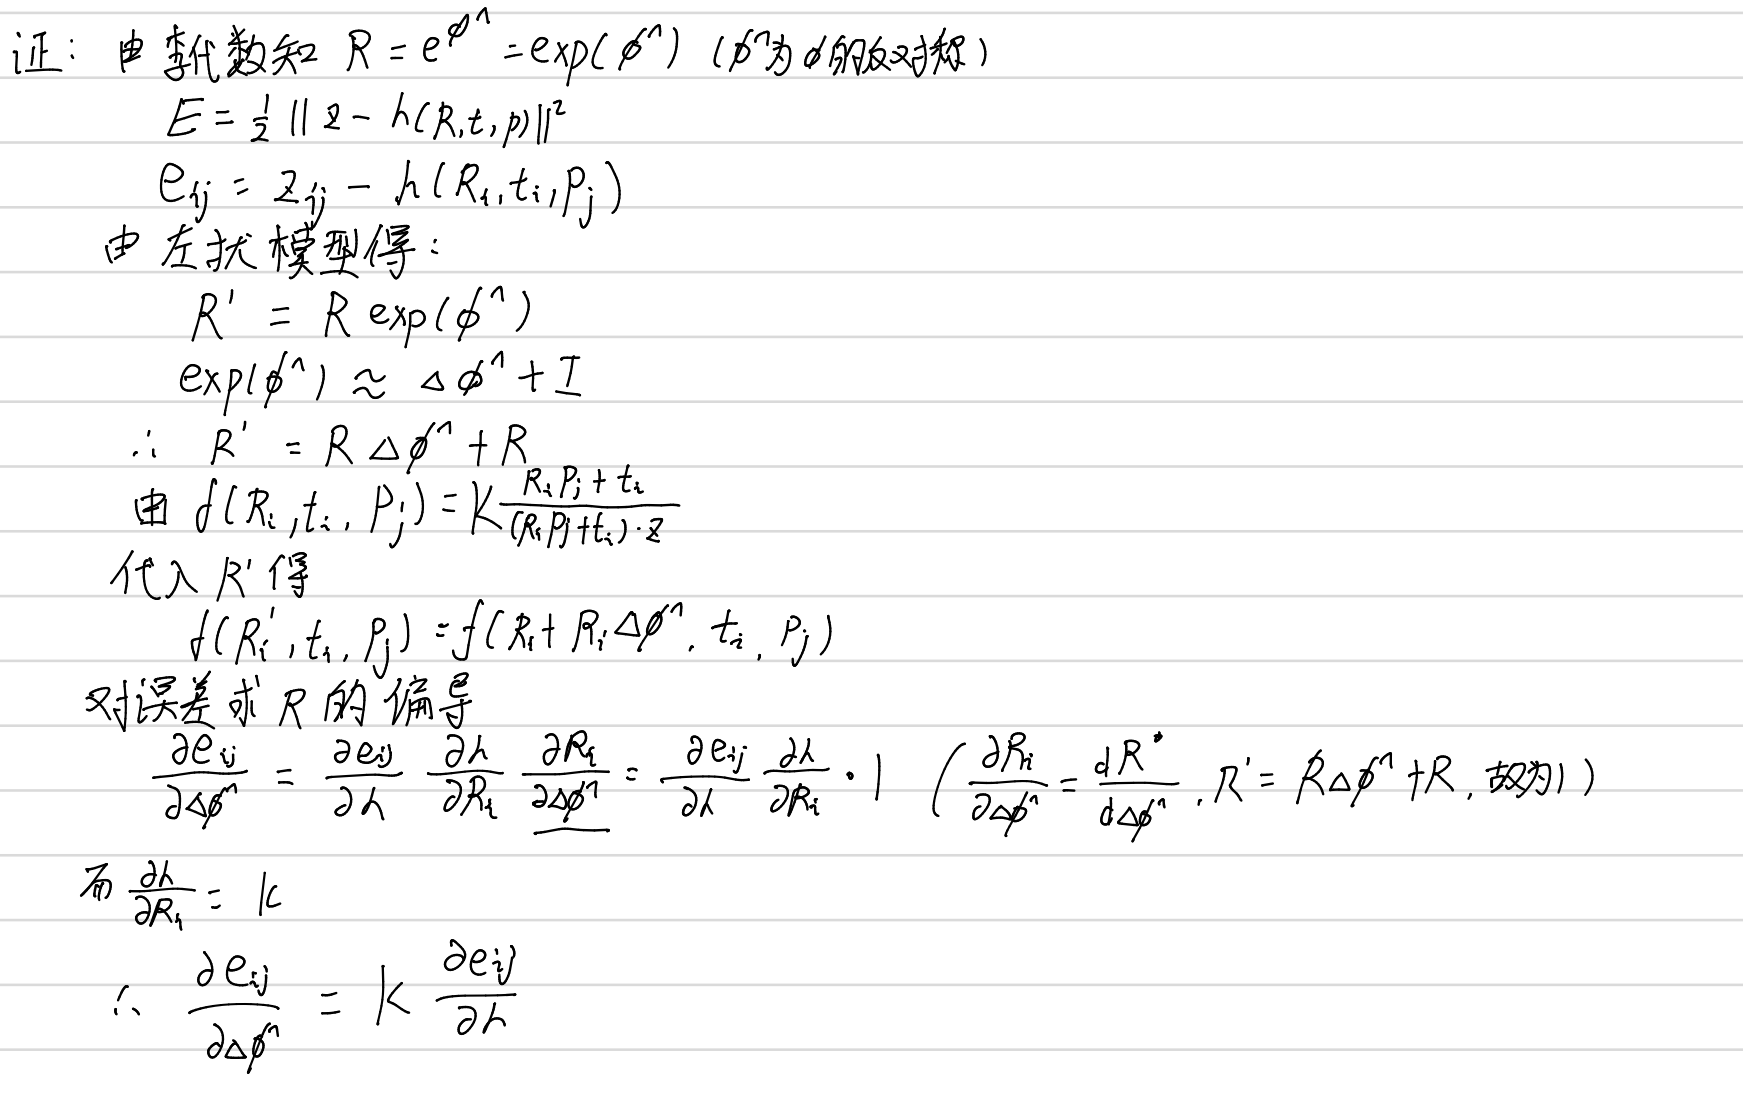 证: 由李代数知 R = e^{ϕ^∧} = exp(ϕ^∧) (ϕ^∧为ϕ的反对称)
E = \frac{1}{2} || z - h(R,t,p)||²
e_{ij} = z_{ij} - h(R_i, t_i, p_j)
由左扰模型得:
R' = R exp(ϕ^∧)
exp(ϕ^∧) ≈ △ϕ^∧ + I
∴ R' = R △ϕ^∧ + R
由 f(R_i, t_i, P_j) = K \frac{R_i P_j + t_i}{(R_i P_j + t_i)·z}
代入 R' 得
f(R_i', t_i, P_j) = f(R_i + R_i △ϕ^∧, t_i, P_j)
对误差求 R 的偏导
\frac{∂e_{ij}}{∂△ϕ^∧} = \frac{∂e_{ij}}{∂h} \frac{∂h}{∂R_i} \frac{∂R_i}{∂△ϕ^∧} = \frac{∂e_{ij}}{∂h} \frac{∂h}{∂R_i} · 1 (\frac{∂R_i}{∂△ϕ^∧} = \frac{dR'}{d△ϕ^∧}, R' = R△ϕ^∧ + R, 故为1)
而 \frac{∂h}{∂R_i} = K
∴ \frac{∂e_{ij}}{∂△ϕ^∧} = K \frac{∂e_{ij}}{∂h}